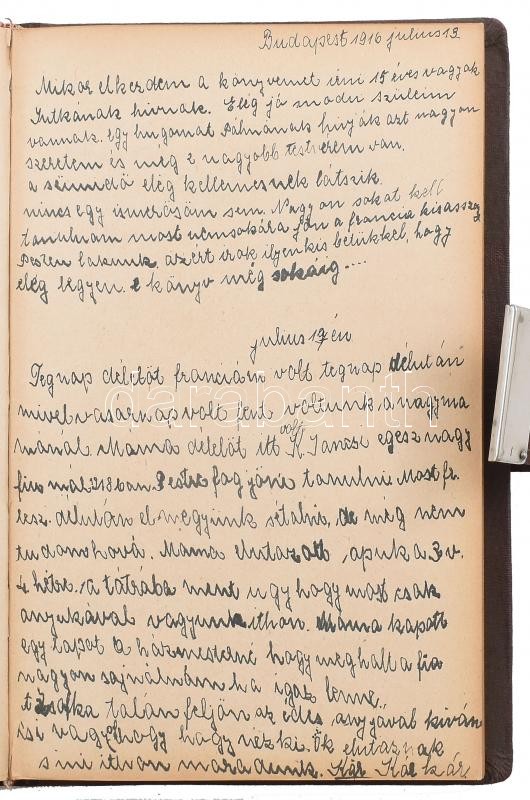 Budapest 1916 julius 13
Mikor elkezdem a könyvemet irni 15 éves vagyok
Jutkának hivnak. Elég jó modu szüleim
vannak. egy hugomat Pálmának hivják azt nagyon
szeretem és még e nagyobb testvérem van.
a elég kellemesnek látszik.
nincs egy ismerősöm sem. Nagyon sokat kell
tanulnom most nemsokára jön a francia kisasszony
Pesten lakunk, azért irok ilyen kis betükkel, hogy
elég legyen e könyv még sokáig....
julius 17én
Tegnap délelöt franciám volt tegnap délután
mivel vasárnap volt fent voltunk a nagyma
mánál. Mama délelöt itt volt K. Jancsi egesz nagy
fiu már 12 Pestre fog jönni tanulni. Most fr.
lesz. délután elmegyünk sétálni, de még nem
tudom hová. Mama elutazott, apuka 3 v.
4 hétre a tátrába ment ugy hogy most csak
anyukával vagyunk itthon. Mama kapott
egy lapot a házmesterné hogy meghalt a fia
nagyon sajnálnám ha igaz lenne.
talán feljön az édes anyjával kiván
csi vagyok hogy hogy néz ki. Ök elutaznak
s mi itthon maradunk. Kár Kár kár
darabanth